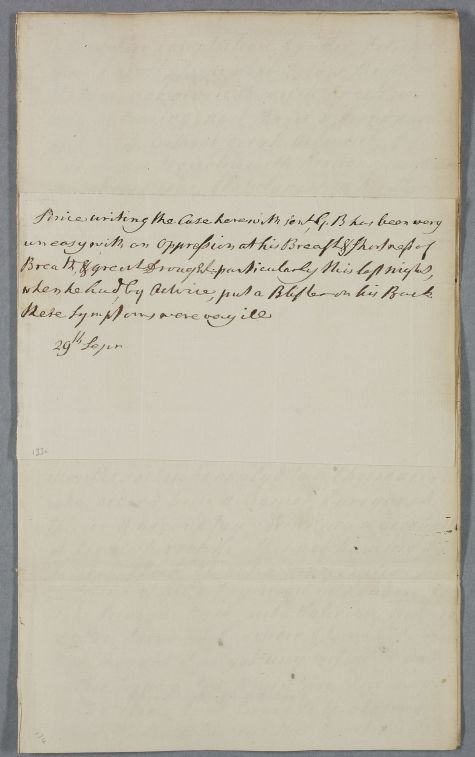 Since writing the Case herewith sent, G. B has been very
uneasy with an Oppression at his Breast & Shortness of
Breath, & great Drought particularly this last night,
when he had, by Advice, put a Blister on his Back
these Symptoms were very ill
29th Sepr